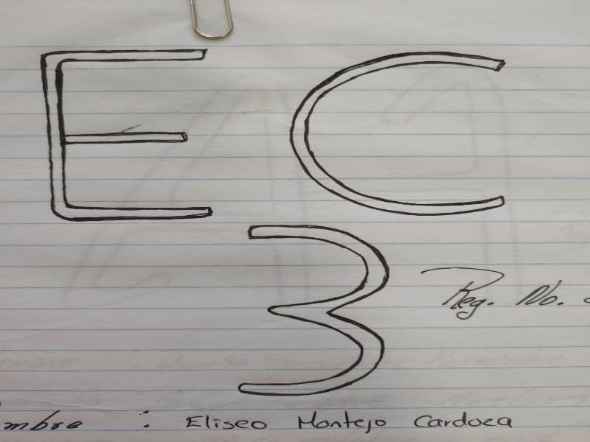 E C
3
Reg. No.
mbre : Eliseo Montejo Cardoza